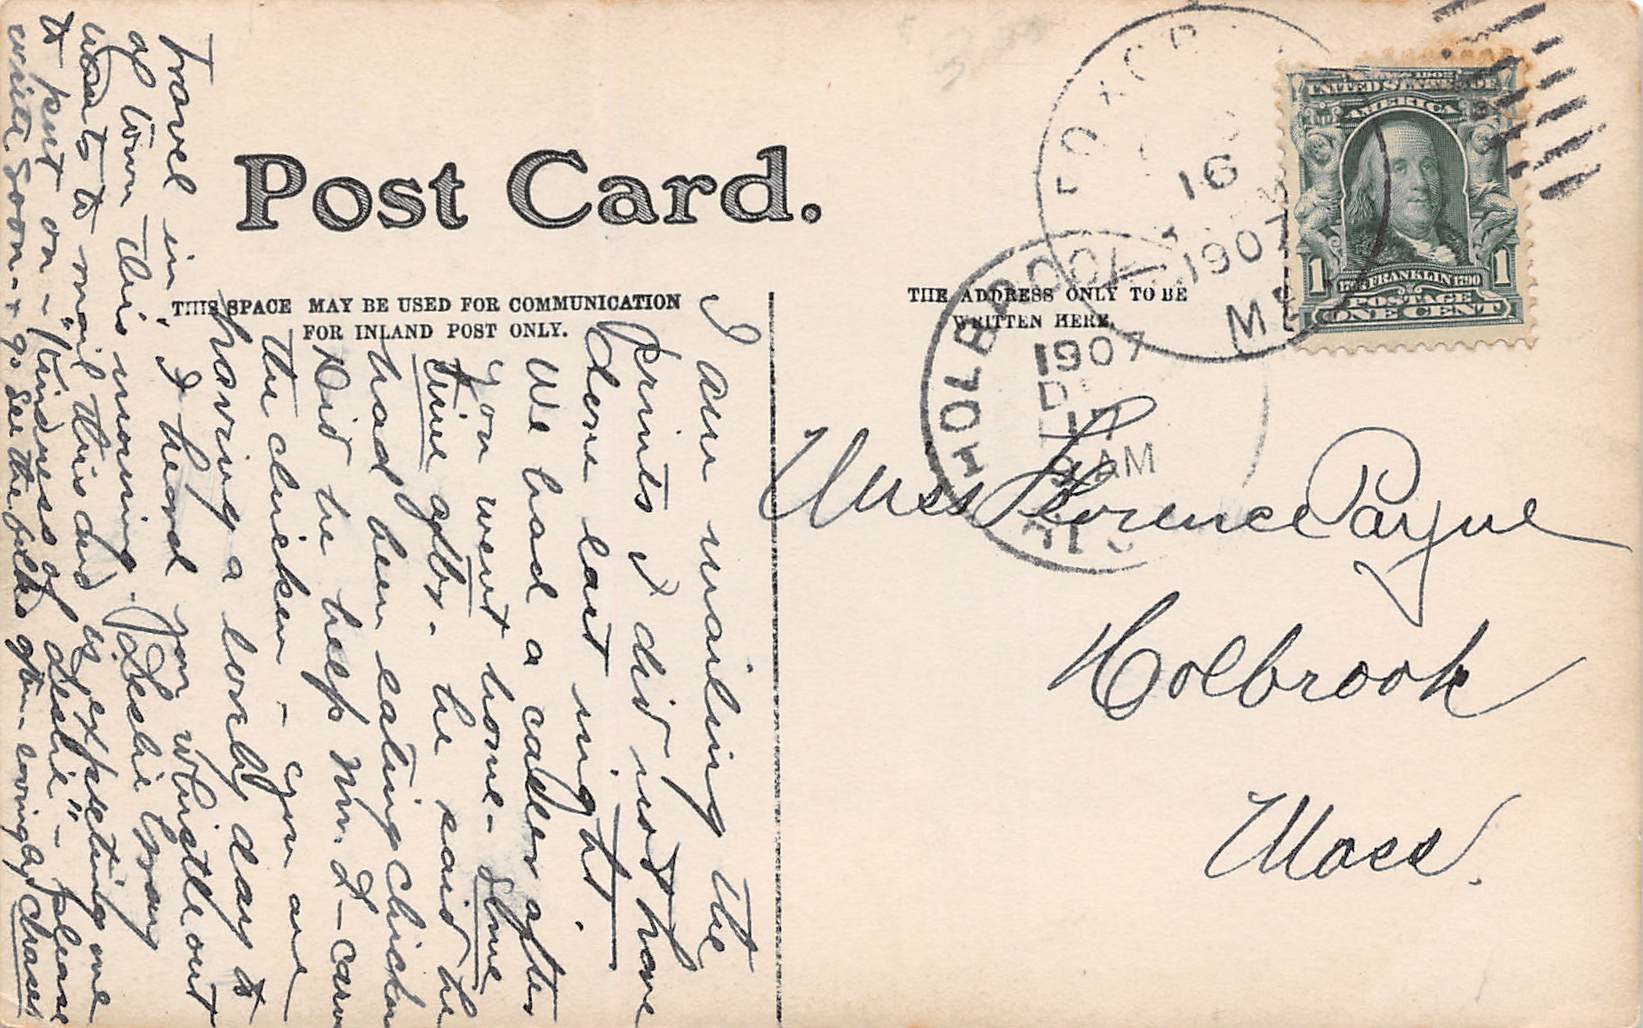 Post Card.
THIS SPACE MAY BE USED FOR COMMUNICATION
FOR INLAND POST ONLY.
THE ADDRESS ONLY TO BE
WRITTEN HERE.
FOXCR
16
1907
ME
HOLBROOK
1907
17
9 AM
UNITED STATES OF
AMERICA
1706 FRANKLIN 1790
POSTAGE
1 ONE CENT 1
Miss Florence Payne
Holbrook
Mass.
I am mailing the
prints I did not have
done last night.
We had a caller after
you went home - some
time after. he said he
had been eating chicken
Did he help Mr. D - carve
the chicken - you are
having a lovely day to
travel in, I heard you whistle out
of town this morning. Leslie Gray
wants to mail this and is expecting me
to put on - "Kindness of Leslie" - please
write soon - & go see the folks often -